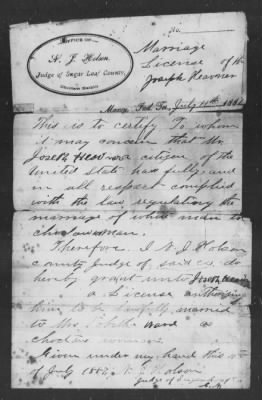 OFFICE OF
N. J. Holson
Judge of Sugar Loaf County,
No.
Marriage
License of Mr
Joseph Heavner
July 11th 1882
This is to certify To whom
it may concern that Mr.
Joseph citizen of the
United State has fully and
in all respect complied
with the law regulating the
marriage of white man to
choctaw woman.
Therefore. I N. J. Holson
county Judge of said co. do
hereby grant unto Joseph
a License authorizing
him to be lawfully married
to Mrs. Ward a
choctaw woman
Given under my hand this
of July 1882 N. J. Holson
Judge of